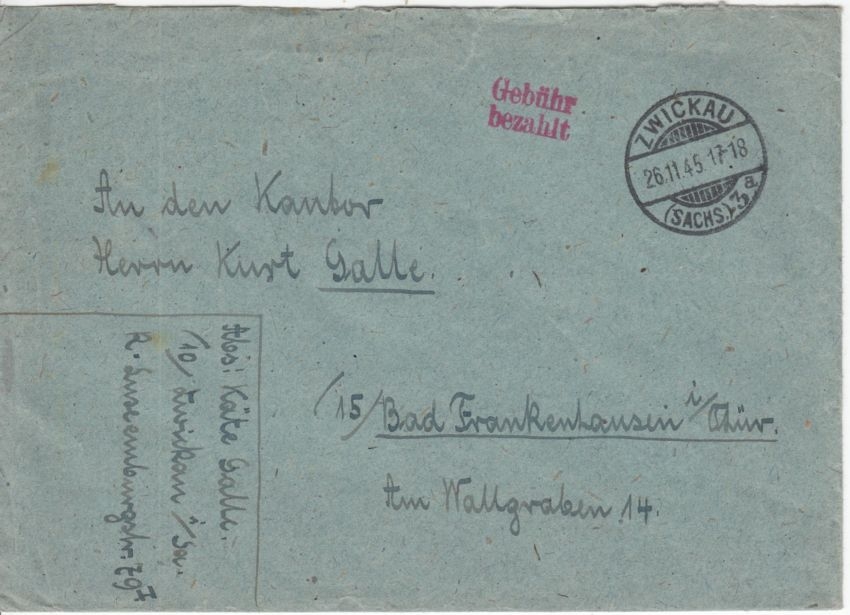 Gebühr
bezahlt
ZWICKAU
26.11.45.17-18
(SACHS.) 3a
An den Kantor
Herrn Kurt Galle.
/15/ Bad Frankenhausen i/Thür.
Am Wallgraben 14.
Abs: Käte Galle.
/10/ Zwickau i/Sa.
R. Luxemburgstr.